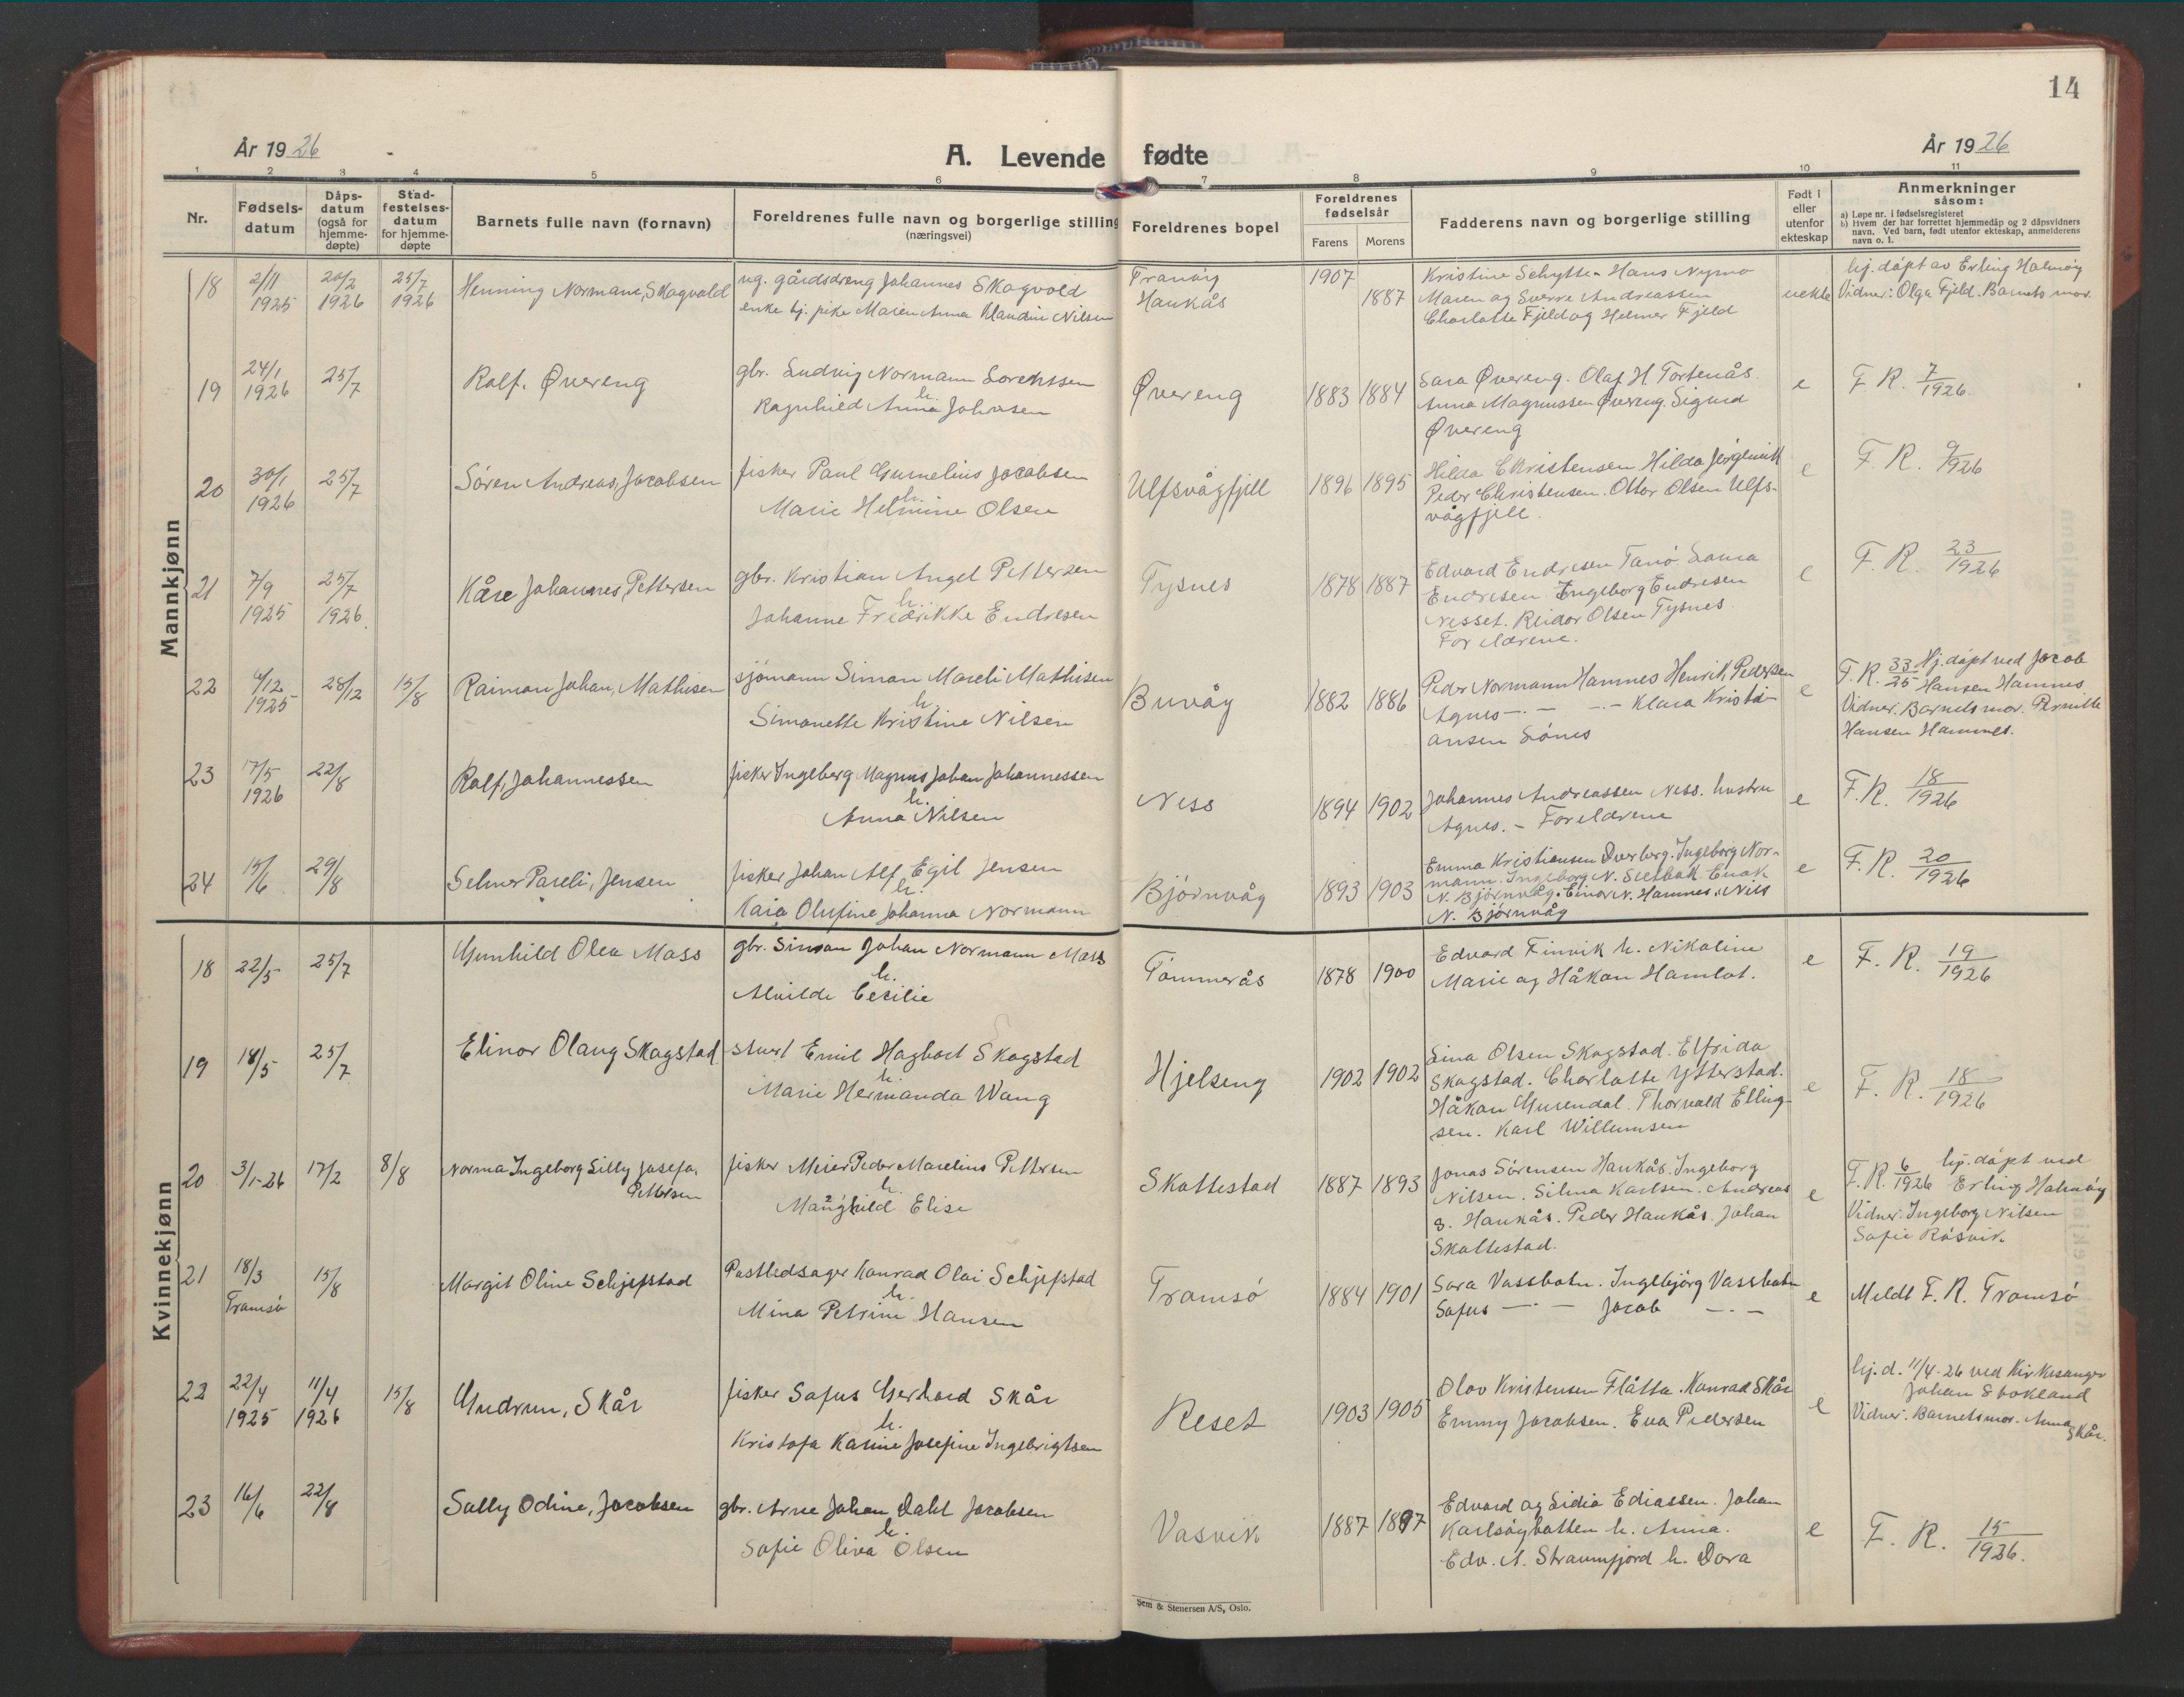 14
År 1926
A. Levende fødte
År 1926
1 2 3 4 5 6 7 8 9 10 11
Nr.
Fødsels-
datum
Dåps-
datum
(også for
hjemme-
døpte)
Stad-
festelses-
datum
for hjemme-
døpte
Barnets fulle navn (fornavn)
Foreldrenes fulle navn og borgerlige stilling
(næringsvei)
Foreldrenes bopel
Foreldrenes
fødselsår
Farens Morens
Fadderens navn og borgerlige stilling
Født i
eller
utenfor
ekteskap
Anmerkninger
såsom:
a) Løpe nr. i fødselsregisteret
b) Hvem der har forrettet hjemmedåp og 2 dåpsvidners
navn. Ved barn, født utenfor ekteskap, anmelderens
navn o. l.
Mannkjønn
18 2/11 1925 20/2 1926 25/7 1926 Henning Normann, Skogvold
ug. gårdsdreng Johannes Skogvold
enke tj. pike Maren Anna Klaudine Nilsen
Tranøy
Haukås
1907
1887
Kristine Schytte. Hans Nymo
Maren og Sverre Andreassen
Charlotte Fjeld og Helmer Fjeld
uekte
hj. døpt av Erling Halmøy
Vidner: Olga Fjeld. Barnets mor.
19 24/1 1926 25/7 Rolf, Øvereng
gbr. Ludvig Normann Lorentssen
h.
Ragnhild Anna Johnsen
Øvereng
1883 1884
Sara Øvereng. Olaf H. Tortenås.
Anna Magnussen Øvereng. Sigurd
Øvereng
e
F. R. 7/1926
20 30/1 1926 25/7 Søren Andreas, Jacobsen
fisker Paul Cornelius Jacobsen
h.
Marie Helmine Olsen
Ulfsvågfjell
1896 1895
Hilda Christensen Hilda
Peder Christensen. Ottar Olsen Ulfs-
vågfjell.
e
F. R. 9/1926
21 7/9 1925 25/7 1926. Kåre Johannes, Pettersen
gbr. Kristian Angel Pettersen
h.
Johanne Fredrikke Endresen
Tysnes
1878 1887
Edvard Endresen Tanø Laura
Endresen Ingeborg Endresen
Nesset. Reidar Olsen Tysnes.
Foreldrene.
e
F. R. 23/1926
22 4/12 1925 28/12 15/8 Raimon Johan, Mathisen
sjømann Simon Mareli Mathisen
h.
Simonette Kristine Nilsen
Buvåg
1882 1886
Peder Normann Hamnes Henrik Pedersen
Agnes -.- -.- Klara Kristi-
ansen Lønes
e
F. R. 33/25 Hj. døpt ved Jacob
Hansen Hamnes
Vidner. Barnets mor. Pernille
Hansen Hamnes.
23 17/5 1926 22/8 Rolf, Johannessen
fisker Ingeberg Magnus Johan Johannessen
h.
Anna Nilsen
Ness
1894 1902
Johannes Andreassen Ness. hustru
Agnes. - Foreldrene
e
F. R. 18/1926
24 15/6 29/8 Selmer Pareli, Jensen
fisker Johan Alf Egil Jensen
h.
Kaia Olufine Johanna Normann
Bjørnvåg
1893 1903
Emma Kristiansen Overberg. Ingeborg Nor-
mann. Ingeborg N. Enok
N. Bjørnvåg. Einar N. Hamnes. Nils
N. Bjørnvåg
e
F. R. 20/1926
Kvinnekjønn
18 22/5 25/7 Gunhild Olea Moss
gbr. Simon Johan Normann Moss
h.
Alvilde Cecilie
Tømmerås
1878 1900
Edvard Finvik h. Nikoline
Marie og Håkon Hamlot.
e
F. R. 19/1926
19 18/5 25/7 Elinor Olaug Skogstad
stuert Emil Hagbart Skogstad
h.
Marie Hermanda Wang
Hjelseng
1902 1902
Lina Olsen Skogstad. Elfrida
Skogstad. Charlotte Ytterstad.
Håkon Thorvald Elling-
sen. Karl Willumsen
e
F. R. 18/1926
20 3/1-26 17/2 8/8 Norma Ingeborg Silly Josefa,
Pettersen
fisker Meier Peder Marelius Pettersen
h.
Magnhild Elise
Skottestad
1887 1893
Jonas Sørensen Haukås. Ingeborg
Nilsen. Silma Karlsen. Andreas
S. Haukås. Peder Haukås. Johan
Skottestad.
e
F. R. 6/1926 hj. døpt ved
Erling Halmøy
Vidner: Ingeborg Nilsen
Sofie Råsvik
21 18/3 Tromsø 15/8 Margit Oline Schjefstad
Postledsager Konrad Olai Schjefstad
h.
Mina Petrine Hansen
Tromsø
1884 1901
Sara Vassbotn. Ingebjørg Vassbotn
Sofus -.- Jacob -.-
e
Meldt F. R. Tromsø
22 22/4 1925 11/4 1926 15/8 Gudrun, Skår
fisker Sofus Gerhard Skår
h.
Kristofa Karine Josefine Ingebrigtsen
Reset
1903 1905
Olav Kristensen Flåtta. Konrad Skår
Emmy Jacobsen. Eva Pedersen
e
hj. d. 11/4-26 ved Kirkesanger
Johan Stokland
Vidner: Barnets mor. Anna
Skår.
23 16/6 22/8 Solly Odine, Jacobsen
gbr. Arne Johan Dahl Jacobsen
h.
Sofie Oliva Olsen
Vasvik
1887 1897
Edvard og Lidia Ediassen. Johan
Karlsøybotten h. Anna.
Edv. A. Straumfjord h. Dora
e
F. R. 15/1926.
Sem & Stenersen A/S, Oslo.